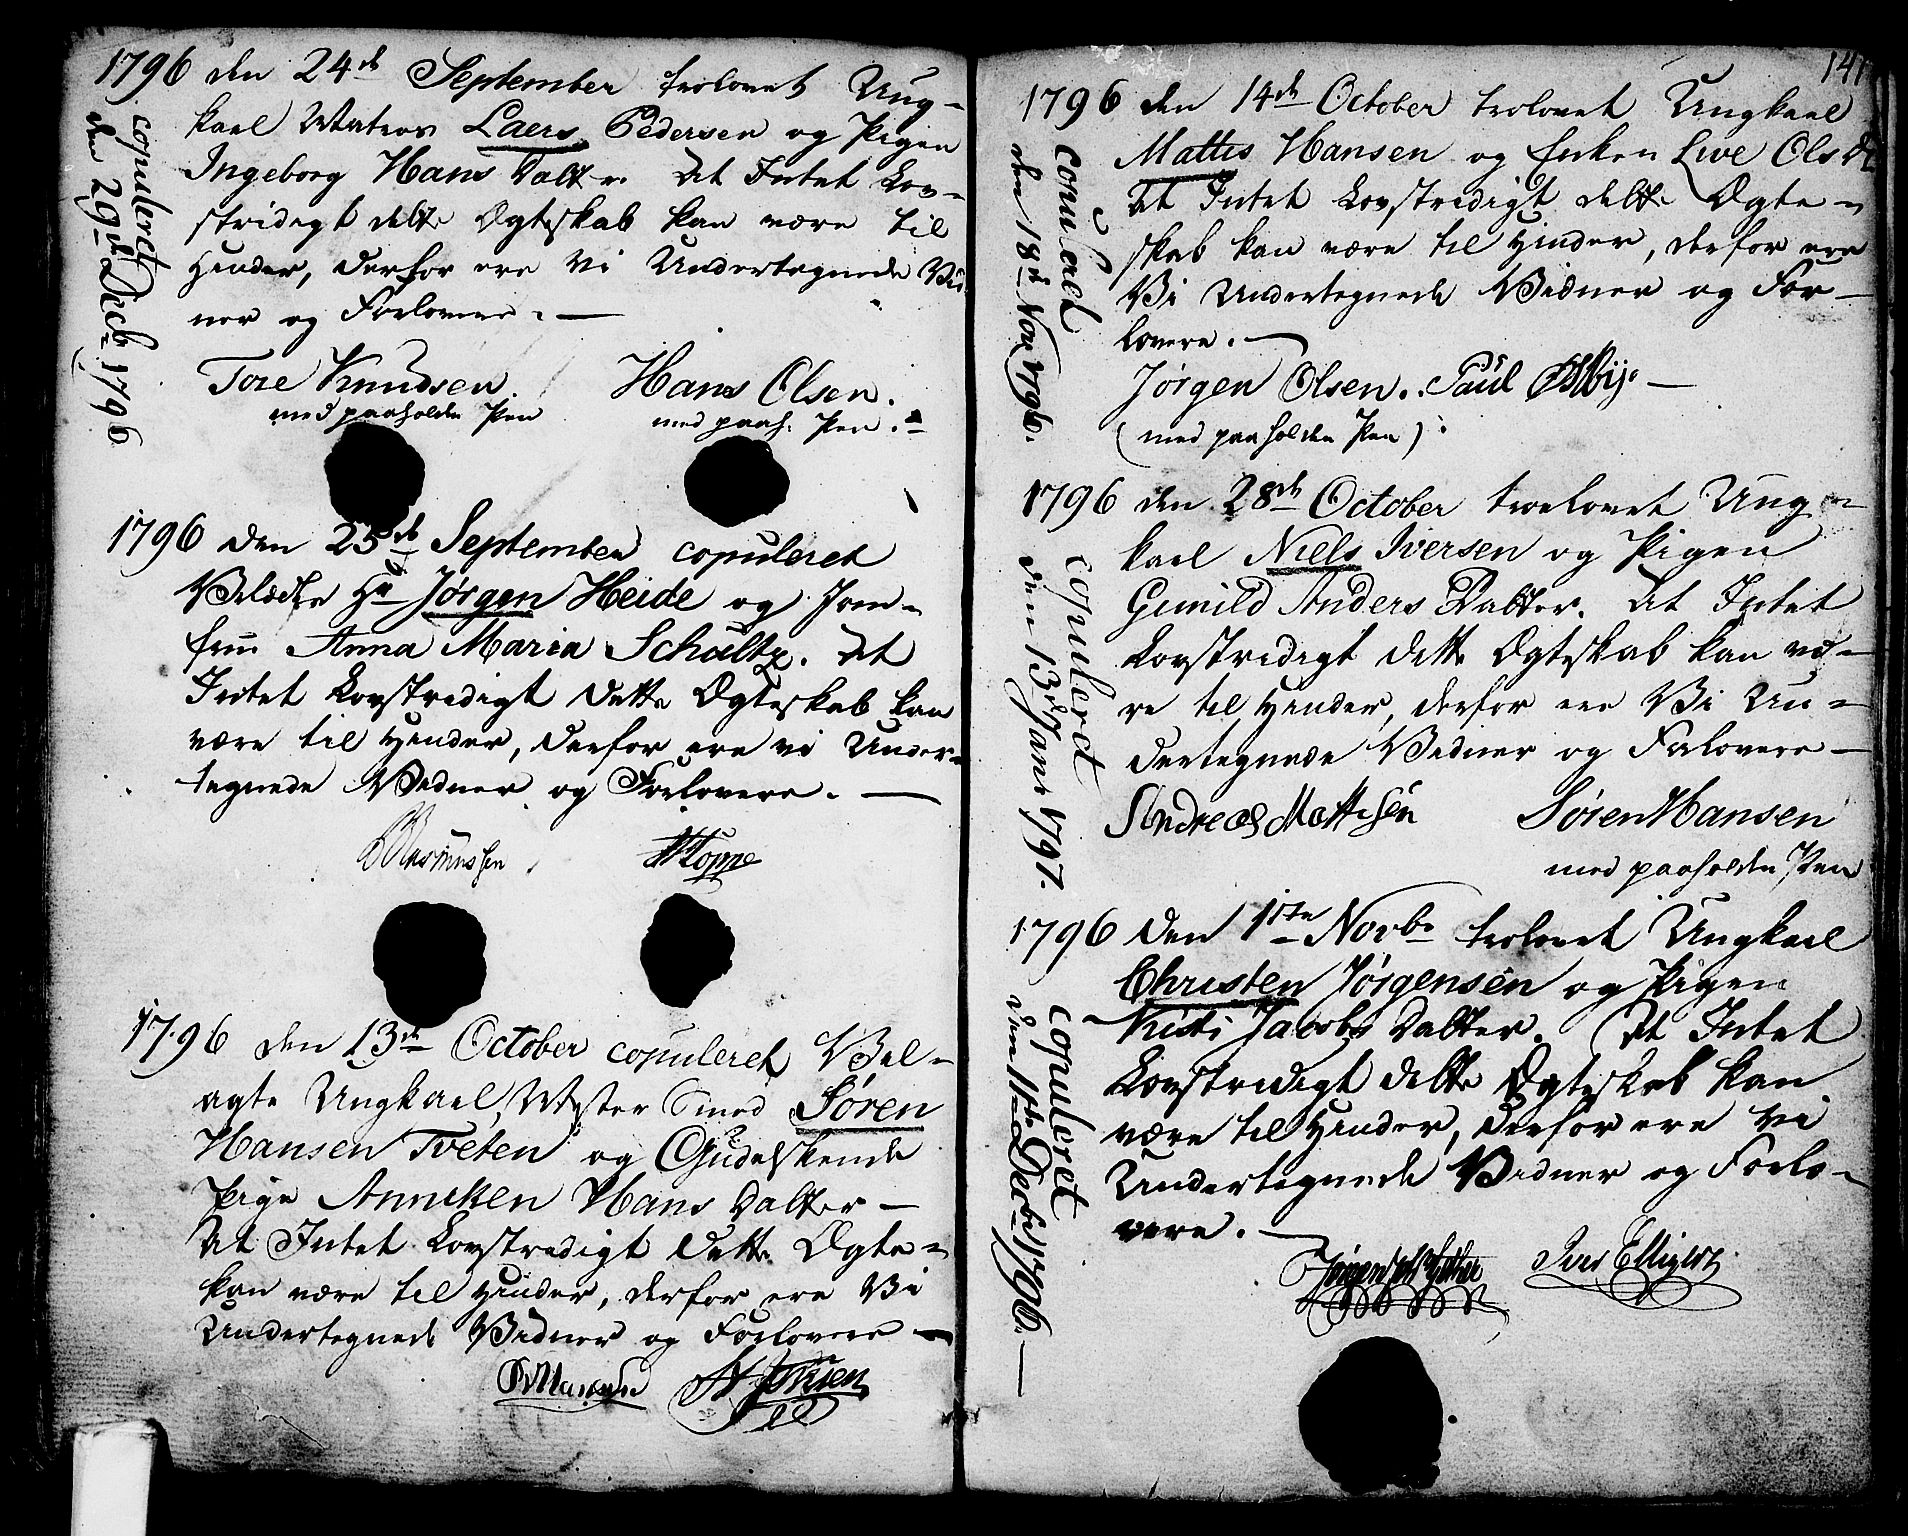 1796 den 24de September trolovet Ung-
karl Matros Laers Pedersen og Pigen
Ingeborg Hans Datter. At Intet Lov-
stridigt dette Ægteskab kan være til
Hinder, derfor ere Vi Undertegnede Vid-
ner og Forlovere. —
copuleret
den 29de Decb 1796
Tore Knudsen Hans Olsen.
med paaholden Pen med paah. Pen.
1796 den 25de September copuleret
Velædle Hr Jørgen Heide og Jom-
fru Anna Maria Schultz. At
Intet Lovstridigt dette Ægteskab kan
være til Hinder, derfor ere vi Under-
tegnede Vidner og Forlovere. —
Rasmussen
1796 den 13de October copuleret Vel-
agte Ungkarl, Mester Smed Søren
Hansen Tveten og Gudelskende
Pige Anneken Hans Datter —
At Intet Lovstridigt dette Ægte-
kan være til Hinder, derfor ere Vi
Undertegnede Vidner og Forlovere —
141
1796 den 14de October trolovet Ungkarl
Mattis Hansen og Enken Live Ols D
At Intet Lovstridigt dette Ægte-
skab kan være til Hinder, derfor ere
Vi Undertegnede Vidner og For-
lovere. —
copuleret
den 18de Nov 1796.
Jørgen Olsen. Paul —
(med paaholden Pen)
1796 den 28de October troelovet Ung-
karl Niels Iversen og Pigen
Gunild Anders Datter. At Intet
Lovstridigt dette Ægteskab kan væ-
re til Hinder, derfor ere Vi Un-
dertegnede Vidner og Forlovere —
copuleret
den 13de Janr 1797.
Andreas Mattisen Søren Hansen
med paaholden Pen
1796 den 1ste Novb. trolovet Ungkarl
Christen Jørgensen og Pigen
Kisti Jacobs Datter. At Intet
Lovstridigt dette Ægteskab kan
være til Hinder, derfor ere Vi
Undertegnede Vidner og Forlo-
vere. —
copuleret
den 11te Decbr 1796. —
Jørgen Iver Elligers